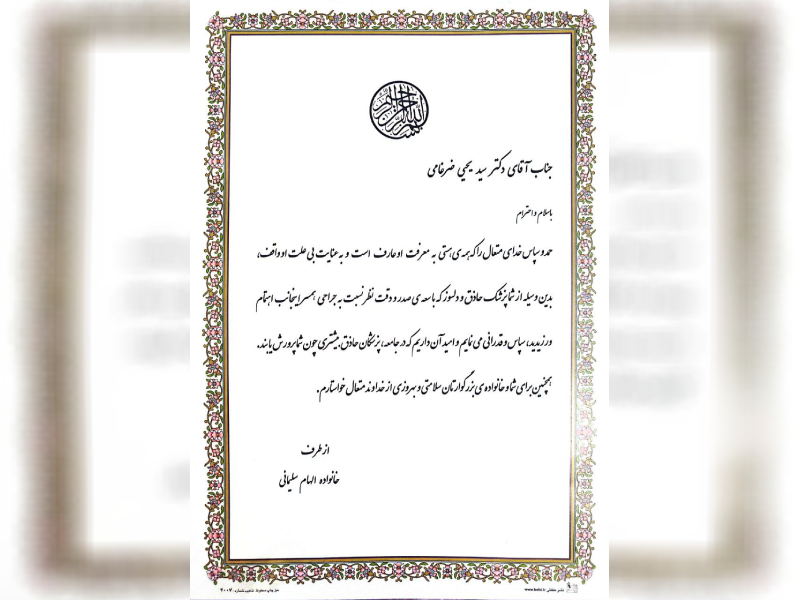 بسم الله الرحمن الرحیم
جناب آقای دکتر سید یحیی ضرغامی
باسلام و احترام
حمد و سپاس خدای متعال را که همه ی هستی به معرفت او عارف است و به عنایت بی علت او واقف،
بدین وسیله از شما پزشک حاذق و دلسوز که باسعه ی صدر و دقت نظر نسبت به جراحی همسر اینجانب اهتمام
ورزیدید، سپاس و قدرانی می نمایم و امید آن داریم که در جامعه، پزشکان حاذق بیشتری چون شما پرورش یابند.
همچنین برای شما و خانواده ی بزرگوارتان سلامتی و بهروزی از خداوند متعال خواستارم.
از طرف
خانواده الهام سلیمانی
نشر حفظی www.hefzi.ir
حق چاپ محفوظ